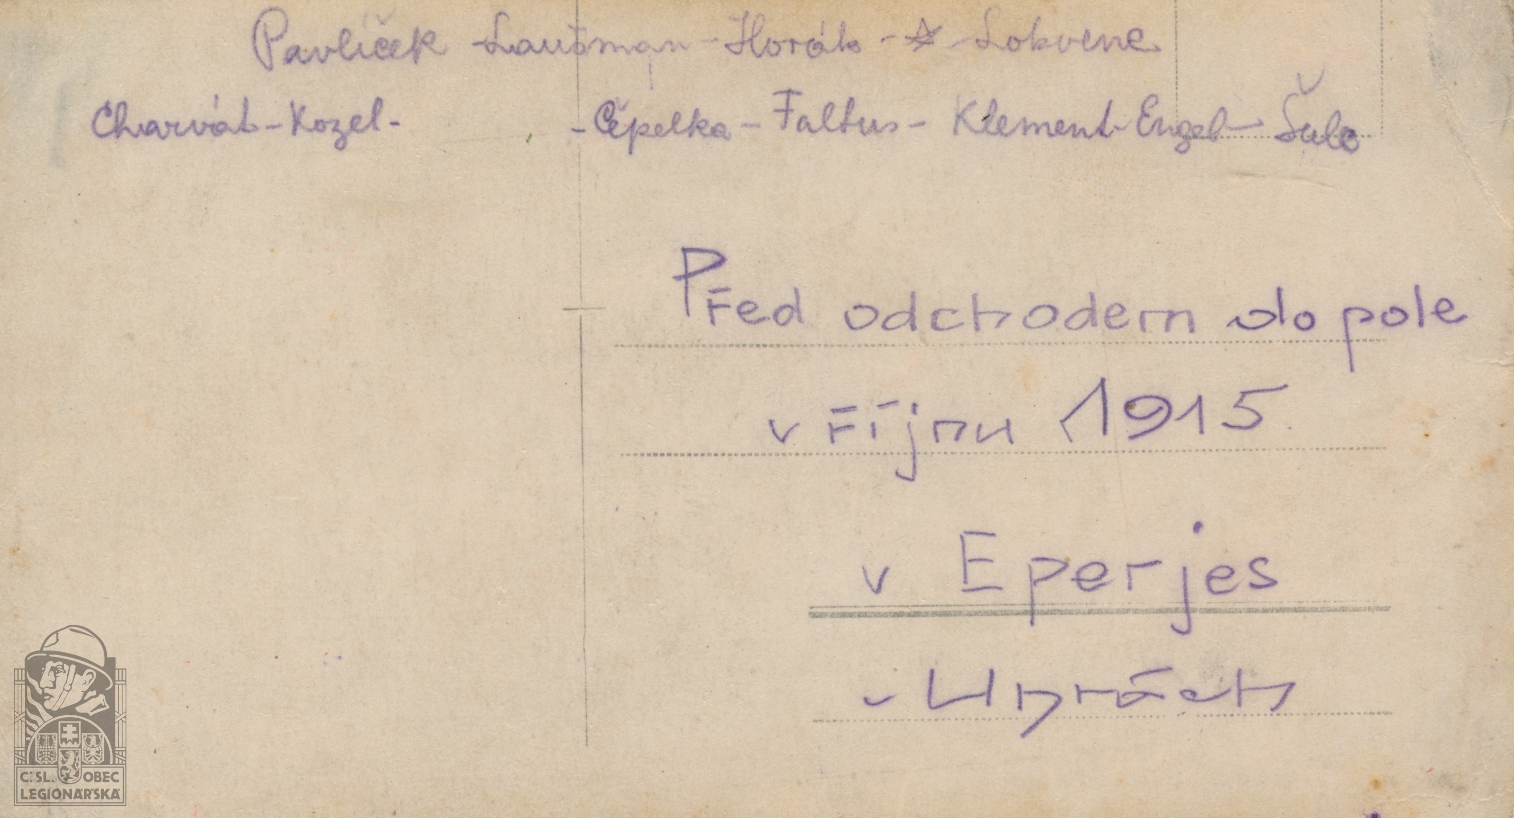 Pavlíček - Laušman - Horák - ☆ - Lokvenc
Charvát - Kozel - - Čepelka - Faltus - Klement - Engel - Šulc
Před odchodem do pole
v říjnu 1915
v Eperjes
v Uhrách
Č:SL. OBEC
LEGIONÁŘSKÁ